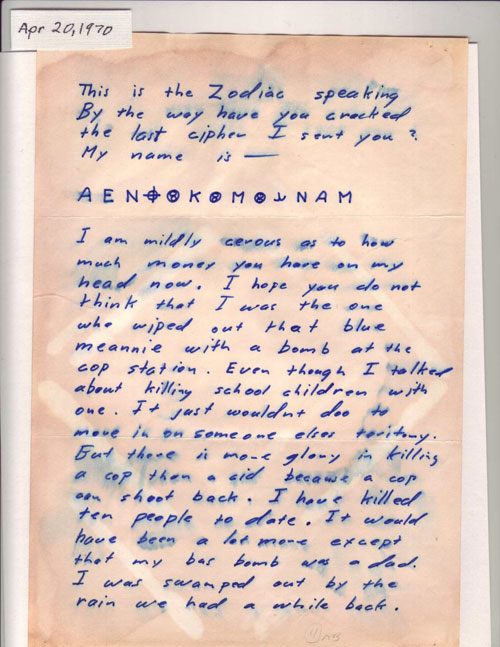 Apr 20, 1970
This is the Zodiac speaking
By the way have you cracked
the last cipher I sent you ?
My name is —
A E N ⌖ ⊗ K ⊗ M ⊗ ⅃ N A M
I am mildly cerous as to how
much money you have on my
head now. I hope you do not
think that I was the one
who wiped out that blue
meannie with a bomb at the
cop station. Even though I talked
about killing school children with
one. It just wouldnt doo to
move in on someone elses teritory.
But there is more glory in killing
a cop than a cid because a cop
can shoot back. I have killed
ten people to date. It would
have been a lot more except
that my bus bomb was a dud.
I was swamped out by the
rain we had a while back.